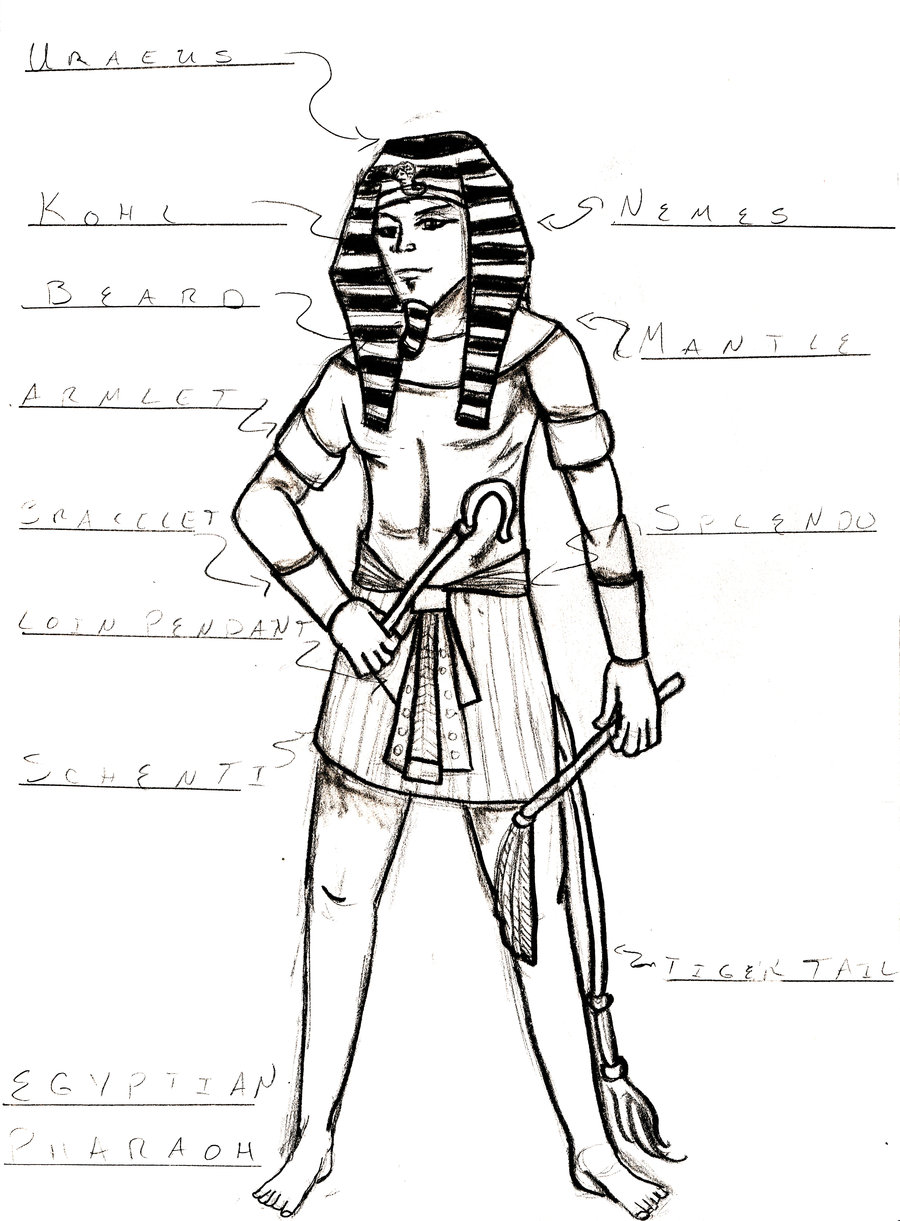 URAEUS
KOHL
NEMES
BEARD
MANTLE
ARMLET
BRACELET
SPLENDO
LOIN PENDANT
SCHENTI
TIGER TAIL
EGYPTIAN
PHARAOH